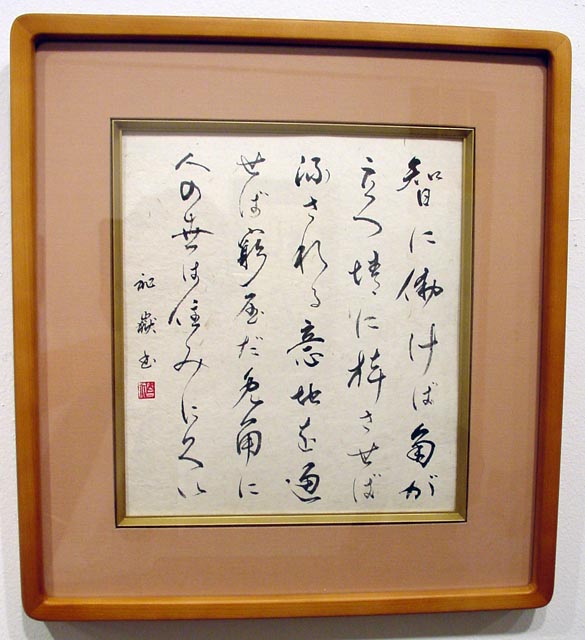 智に働けば角が
立つ情に棹させば
流される意地を通
せば窮屈だ兎角に
人の世は住みにくい
嶽書